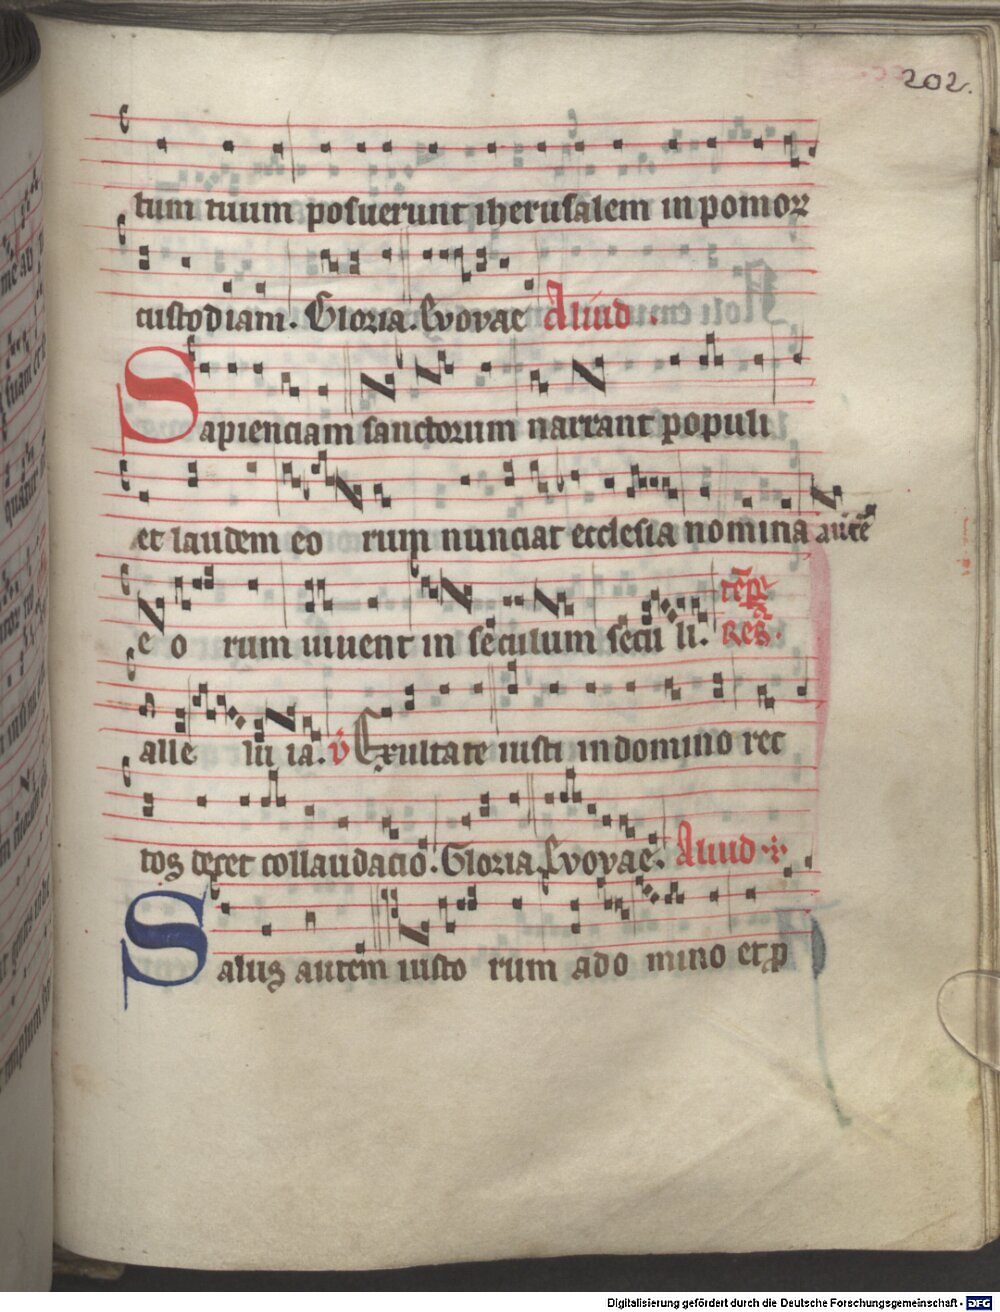 202.
tum tuum posuerunt iherusalem in pomoꝝ
custodiam. Gloria. Evovae Aliud.
Sapienciam sanctorum narrant populi
et laudem eo rum nunciat ecclesia nomina autē
e o rum vivent in sēculum sēcu li.
alle lu ia. Exultate iusti in domino rec
tos decet collaudacio. Gloria. Evovae. Aliud
Salus autem iusto rum a do mino et ꝓ
Digitalisierung gefördert durch die Deutsche Forschungsgemeinschaft - DFG